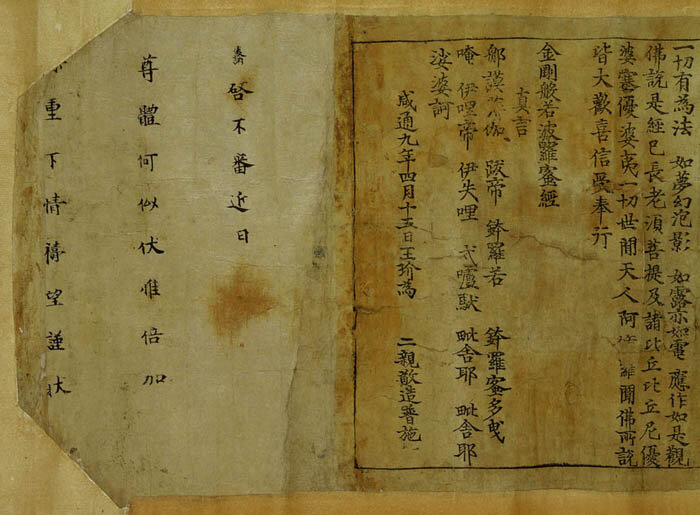 一切有為法　如夢幻泡影　如露亦如電　應作如是觀
佛說是經已長老須菩提及諸比丘比丘尼優
婆塞優婆夷一切世間天人阿修羅聞佛所說
皆大歡喜信受奉行
金剛般若波羅蜜經
真言
那謨　伽　跋帝　鉢羅若　鉢羅蜜多曳
唵　伊哩帝　伊失哩　戍嚧馱　毗舍耶　毗舍耶
娑婆訶
咸通九年四月十五日王玠為　二親敬造普施
啓不審近日
尊體何似伏惟倍加
重下情禱望謹狀